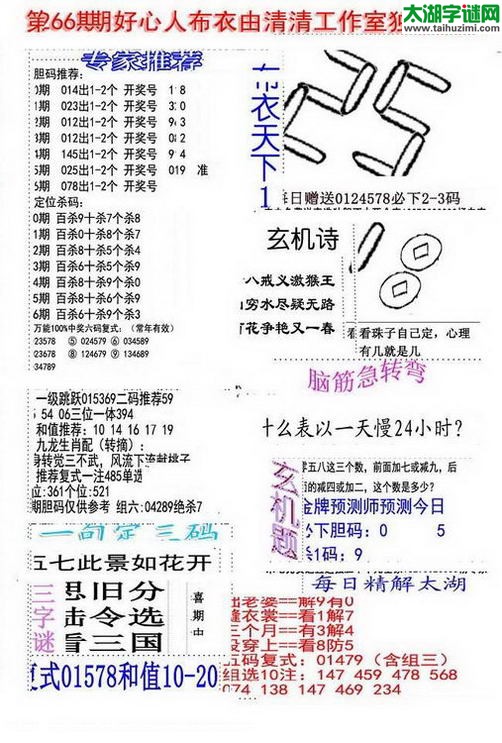 第66期期好心人布衣由清清工作室独
太湖字谜网
www.taihuzimi.com
专家推荐
胆码推荐:
期 014出1-2个 开奖号 1 8
期 023出1-2个 开奖号 3 0
期 012出1-2个 开奖号 9 3
期 012出1-2个 开奖号 2
期 145出1-2个 开奖号 9 4
期 025出1-2个 开奖号 019 准
期 078出1-2个 开奖号
定位杀码:
0期 百杀9十杀7个杀8
1期 百杀0十杀8个杀7
2期 百杀8十杀5个杀4
3期 百杀6十杀5个杀9
4期 百杀8十杀9个杀0
5期 百杀8十杀6个杀9
6期 百杀6十杀9个杀3
万能100%中奖六码复式: (常年有效)
23578 ⑤ 024579 ⑥ 034589
23678 ⑧ 124679 ⑨ 134689
34789
布衣天下1
25
每日赠送0124578必下2-3码
玄机诗
八戒义激猴王
山穷水尽疑无路
百花争艳又一春
看看珠子自己定,心理
有几就是几
脑筋急转弯
什么表以一天慢24小时?
一级跳跃015369二码推荐59
54 06三位一体394
和值推荐: 10 14 16 17 19
九龙生肖配(转摘):
身转觉三不武, 风流下流献桃子
推荐复式一注485单选
位:361个位:521
期胆码仅供参考 组六:04289绝杀7
玄机题
零五八这三个数, 前面加七或减九, 后
的减四或加二, 这个数是多少?
金牌预测师预测今日
必下胆码: 0 5
杀1码: 9
一句定三码
五七此景如花开
三字谜
旧分
令选
看三国
喜期中
复式01578和值10-20
每日精解太湖
出老婆==解9有0
缝衣裳==看1解7
三个月==有3解4
没穿上==看8防5
五码复式: 01479 (含组三)
组选10注: 147 459 478 568
074 138 147 469 234